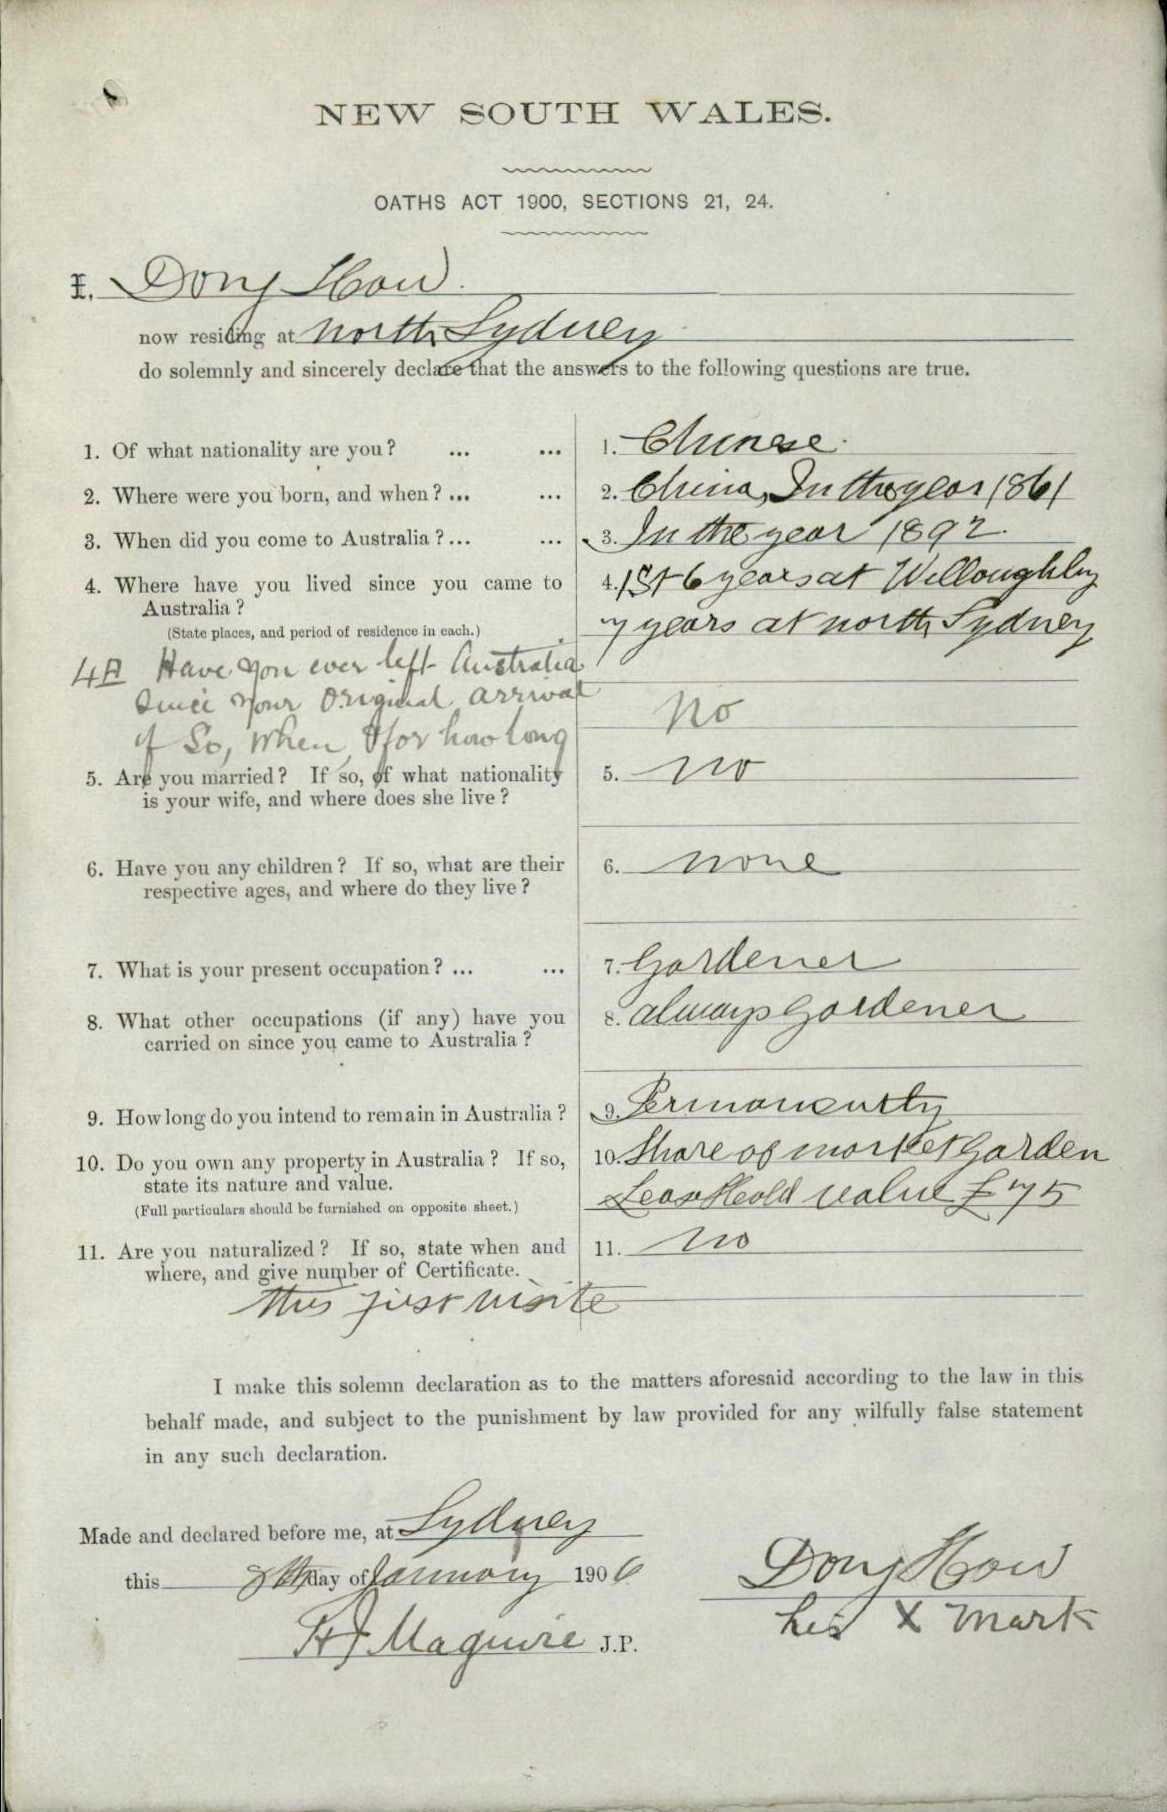 NEW SOUTH WALES.
OATHS ACT 1900, SECTIONS 21, 24.
I, Dong How.
now residing at North Sydney
do solemnly and sincerely declare that the answers to the following questions are true.
1. Of what nationality are you? ... ... 1. Chinese.
2. Where were you born, and when? ... ... 2. China, In the year 1861
3. When did you come to Australia? ... ... 3. In the year 1892.
4. Where have you lived since you came to 4. 1st 6 years at Willoughby
Australia? 7 years at North Sydney
(State places, and period of residence in each.)
4A Have you ever left Australia
Since your Original arrival No
if So, When, & for how long
5. Are you married? If so, of what nationality 5. No
is your wife, and where does she live?
6. Have you any children? If so, what are their 6. none
respective ages, and where do they live?
7. What is your present occupation? ... ... 7. Gardener
8. What other occupations (if any) have you 8. always Gardener
carried on since you came to Australia?
9. How long do you intend to remain in Australia? 9. Permanently
10. Do you own any property in Australia? If so, 10. Share of market Garden
state its nature and value. Lease Hold value £75
(Full particulars should be furnished on opposite sheet.)
11. Are you naturalized? If so, state when and 11. No
where, and give number of Certificate.
this first visite
I make this solemn declaration as to the matters aforesaid according to the law in this
behalf made, and subject to the punishment by law provided for any wilfully false statement
in any such declaration.
Made and declared before me, at Sydney
this 8th day of January 1906
Dong How
his X mark
H J Maguire J.P.